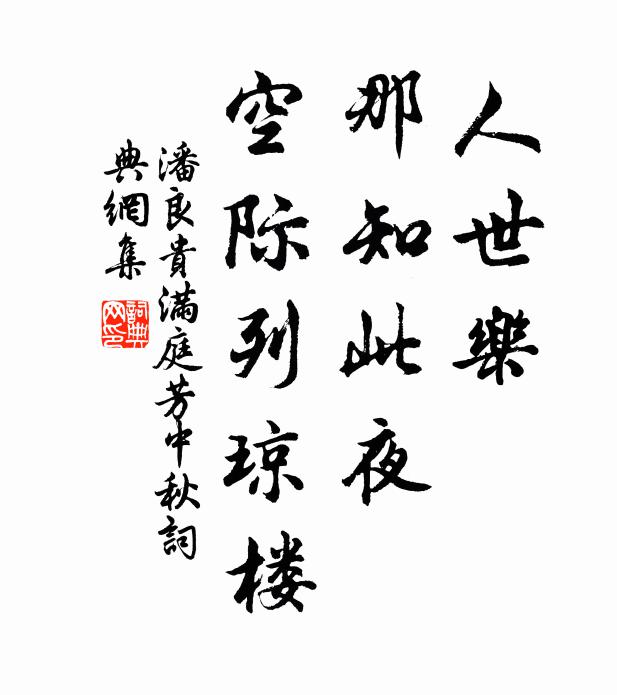 人世樂
那知此夜
空际列琼楼
潘良貴滿庭芳中秋詞
典網集
詞典网印